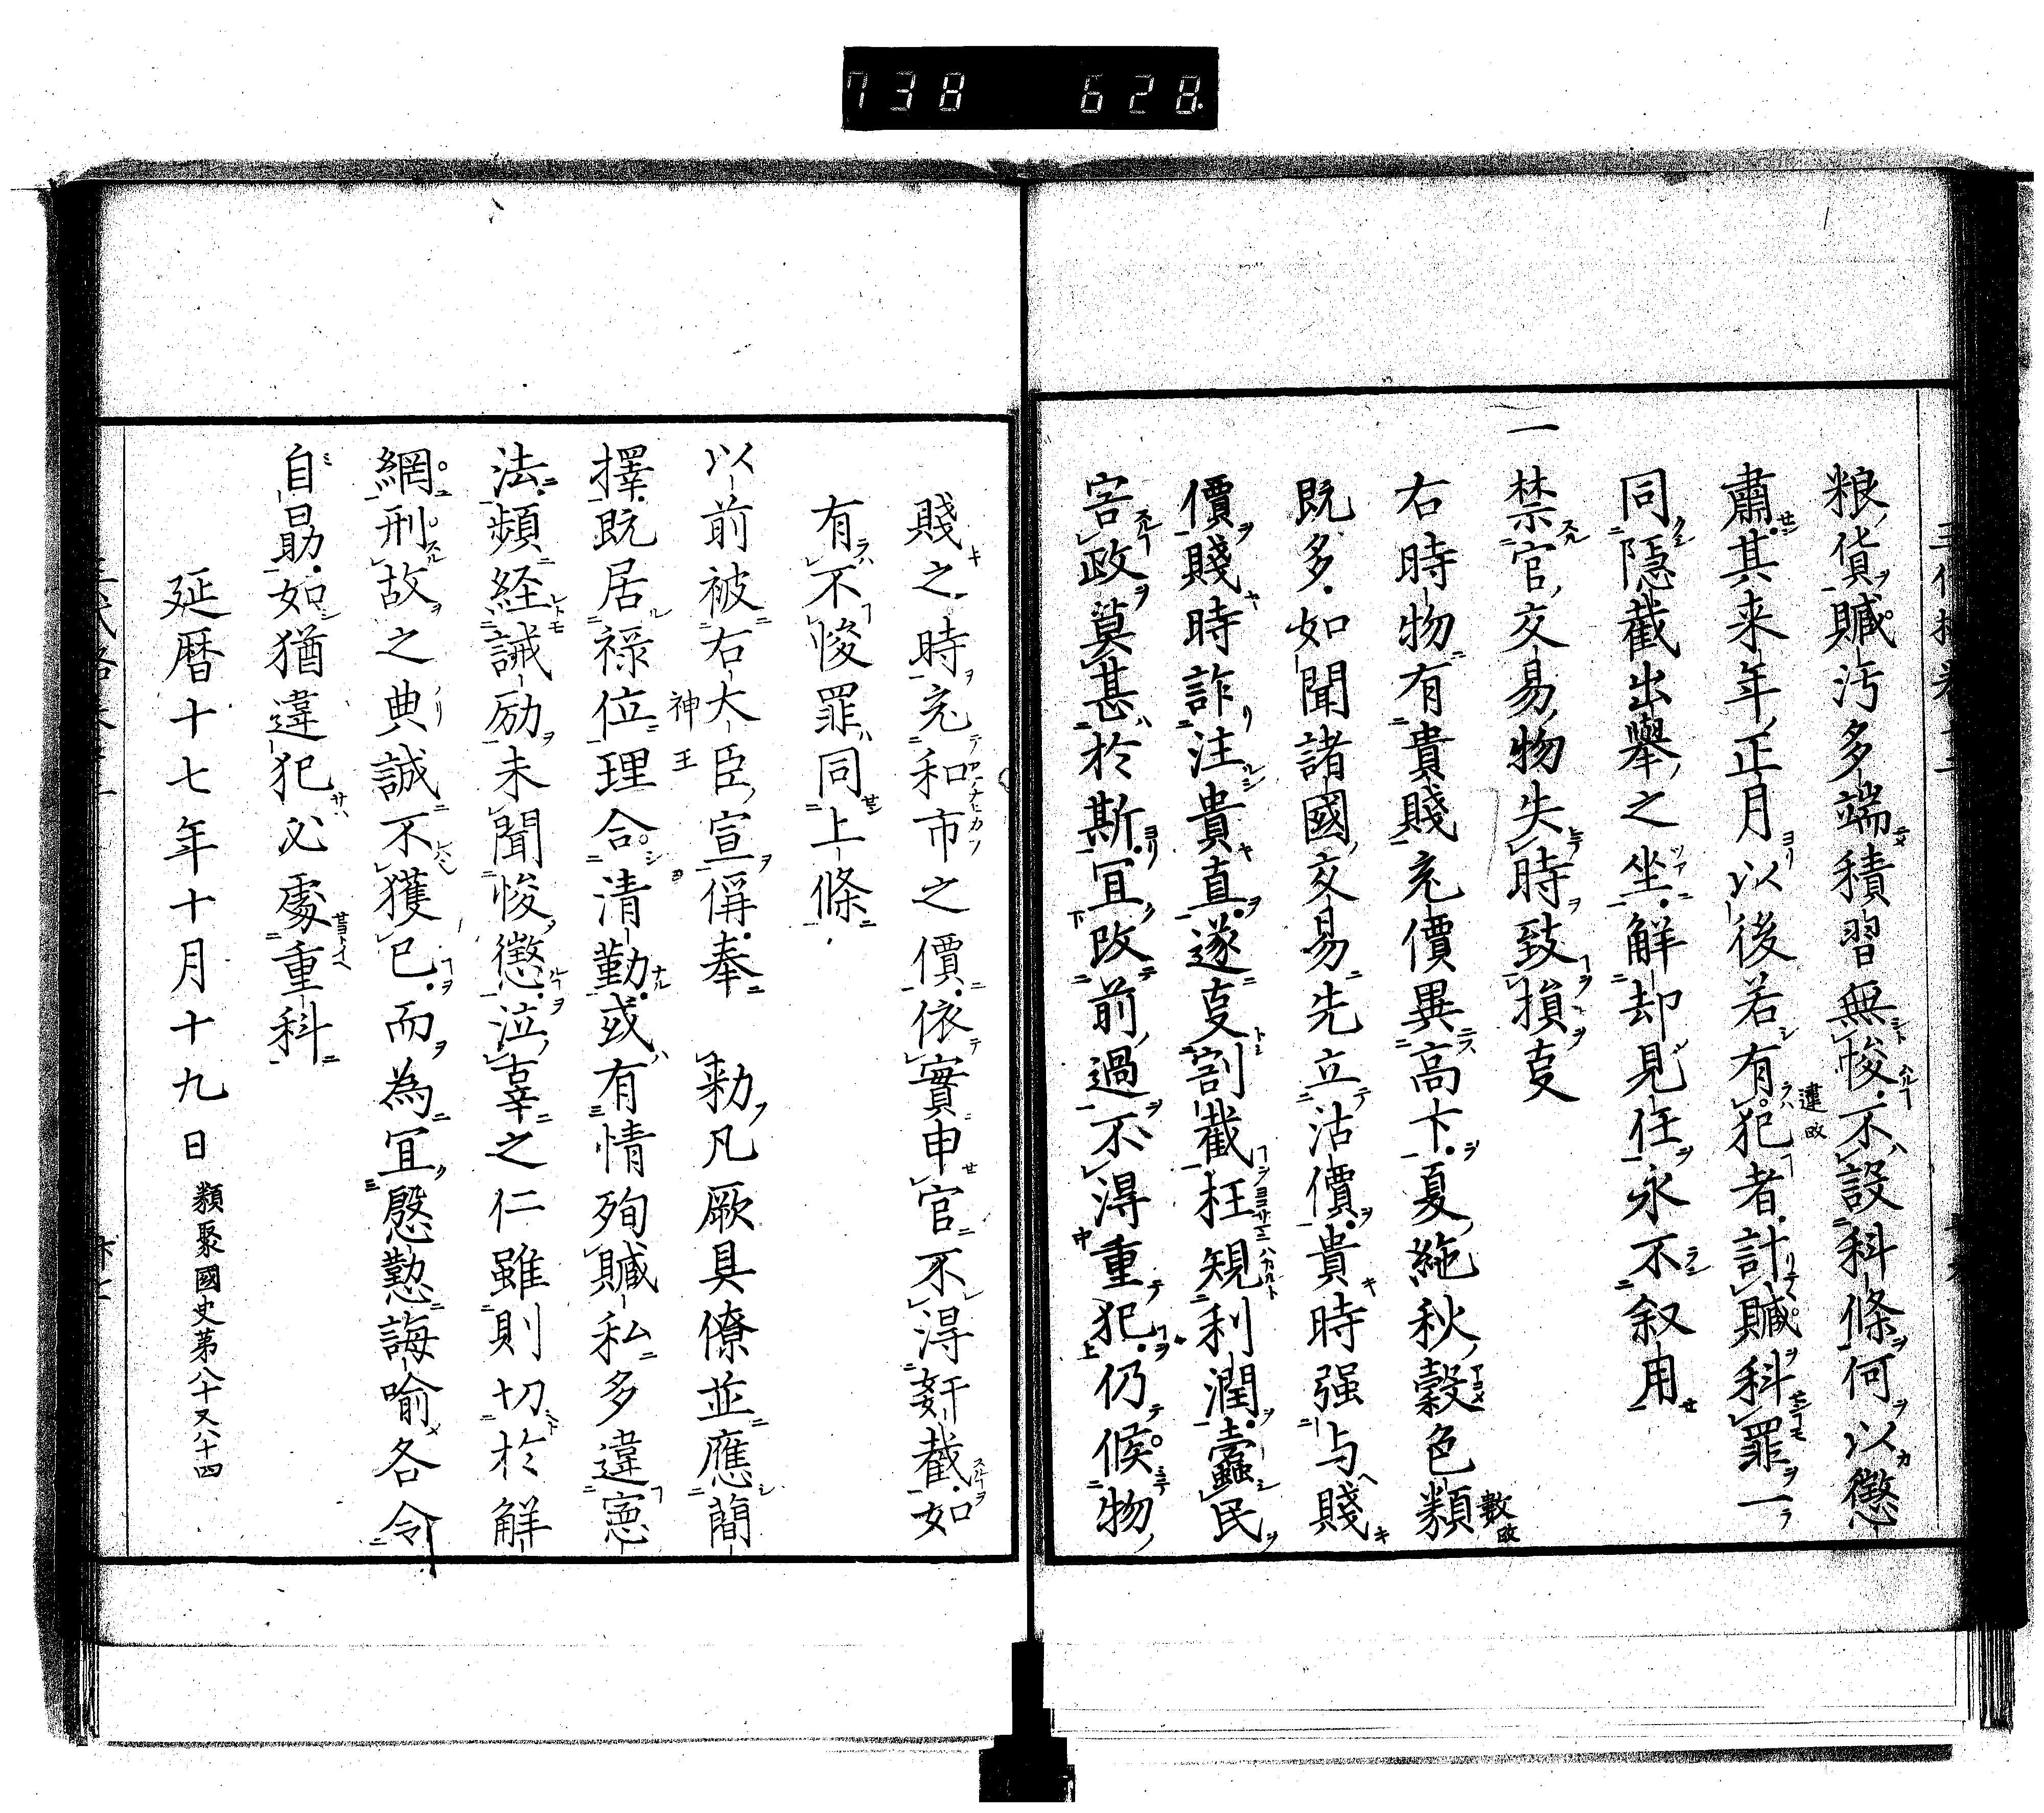 738 628
粮貨贓汚多端積習無悛不設科條何以懲
肅其来年正月以後若有犯者計贓科罪一
違欤
同隠截出擧之坐解却見任永不叙用
一禁官交易物失時致損事
右時物有貴賤充價異高下夏絁秋穀色類
數欤
既多如聞諸國交易先立沽價貴時强与賤
價賤時詐注貴直遂事割截枉規利潤蠧民
害政莫甚於斯冝改前過不得重犯仍候物
賤之時充和市之價依實申官不得姧截如
有不悛罪同上條
以前被右大臣宣偁奉 勅凡厥具僚並應簡
神王
擇既居禄位理合清勤或有情殉贓私多違憲
法頻経誡励未聞悛懲泣辜之仁雖則切於解
網刑故之典誠不獲已而為冝慇懃誨喻各令
自勗如猶違犯必處重科
延暦十七年十月十九日 類聚國史第八十又八十四